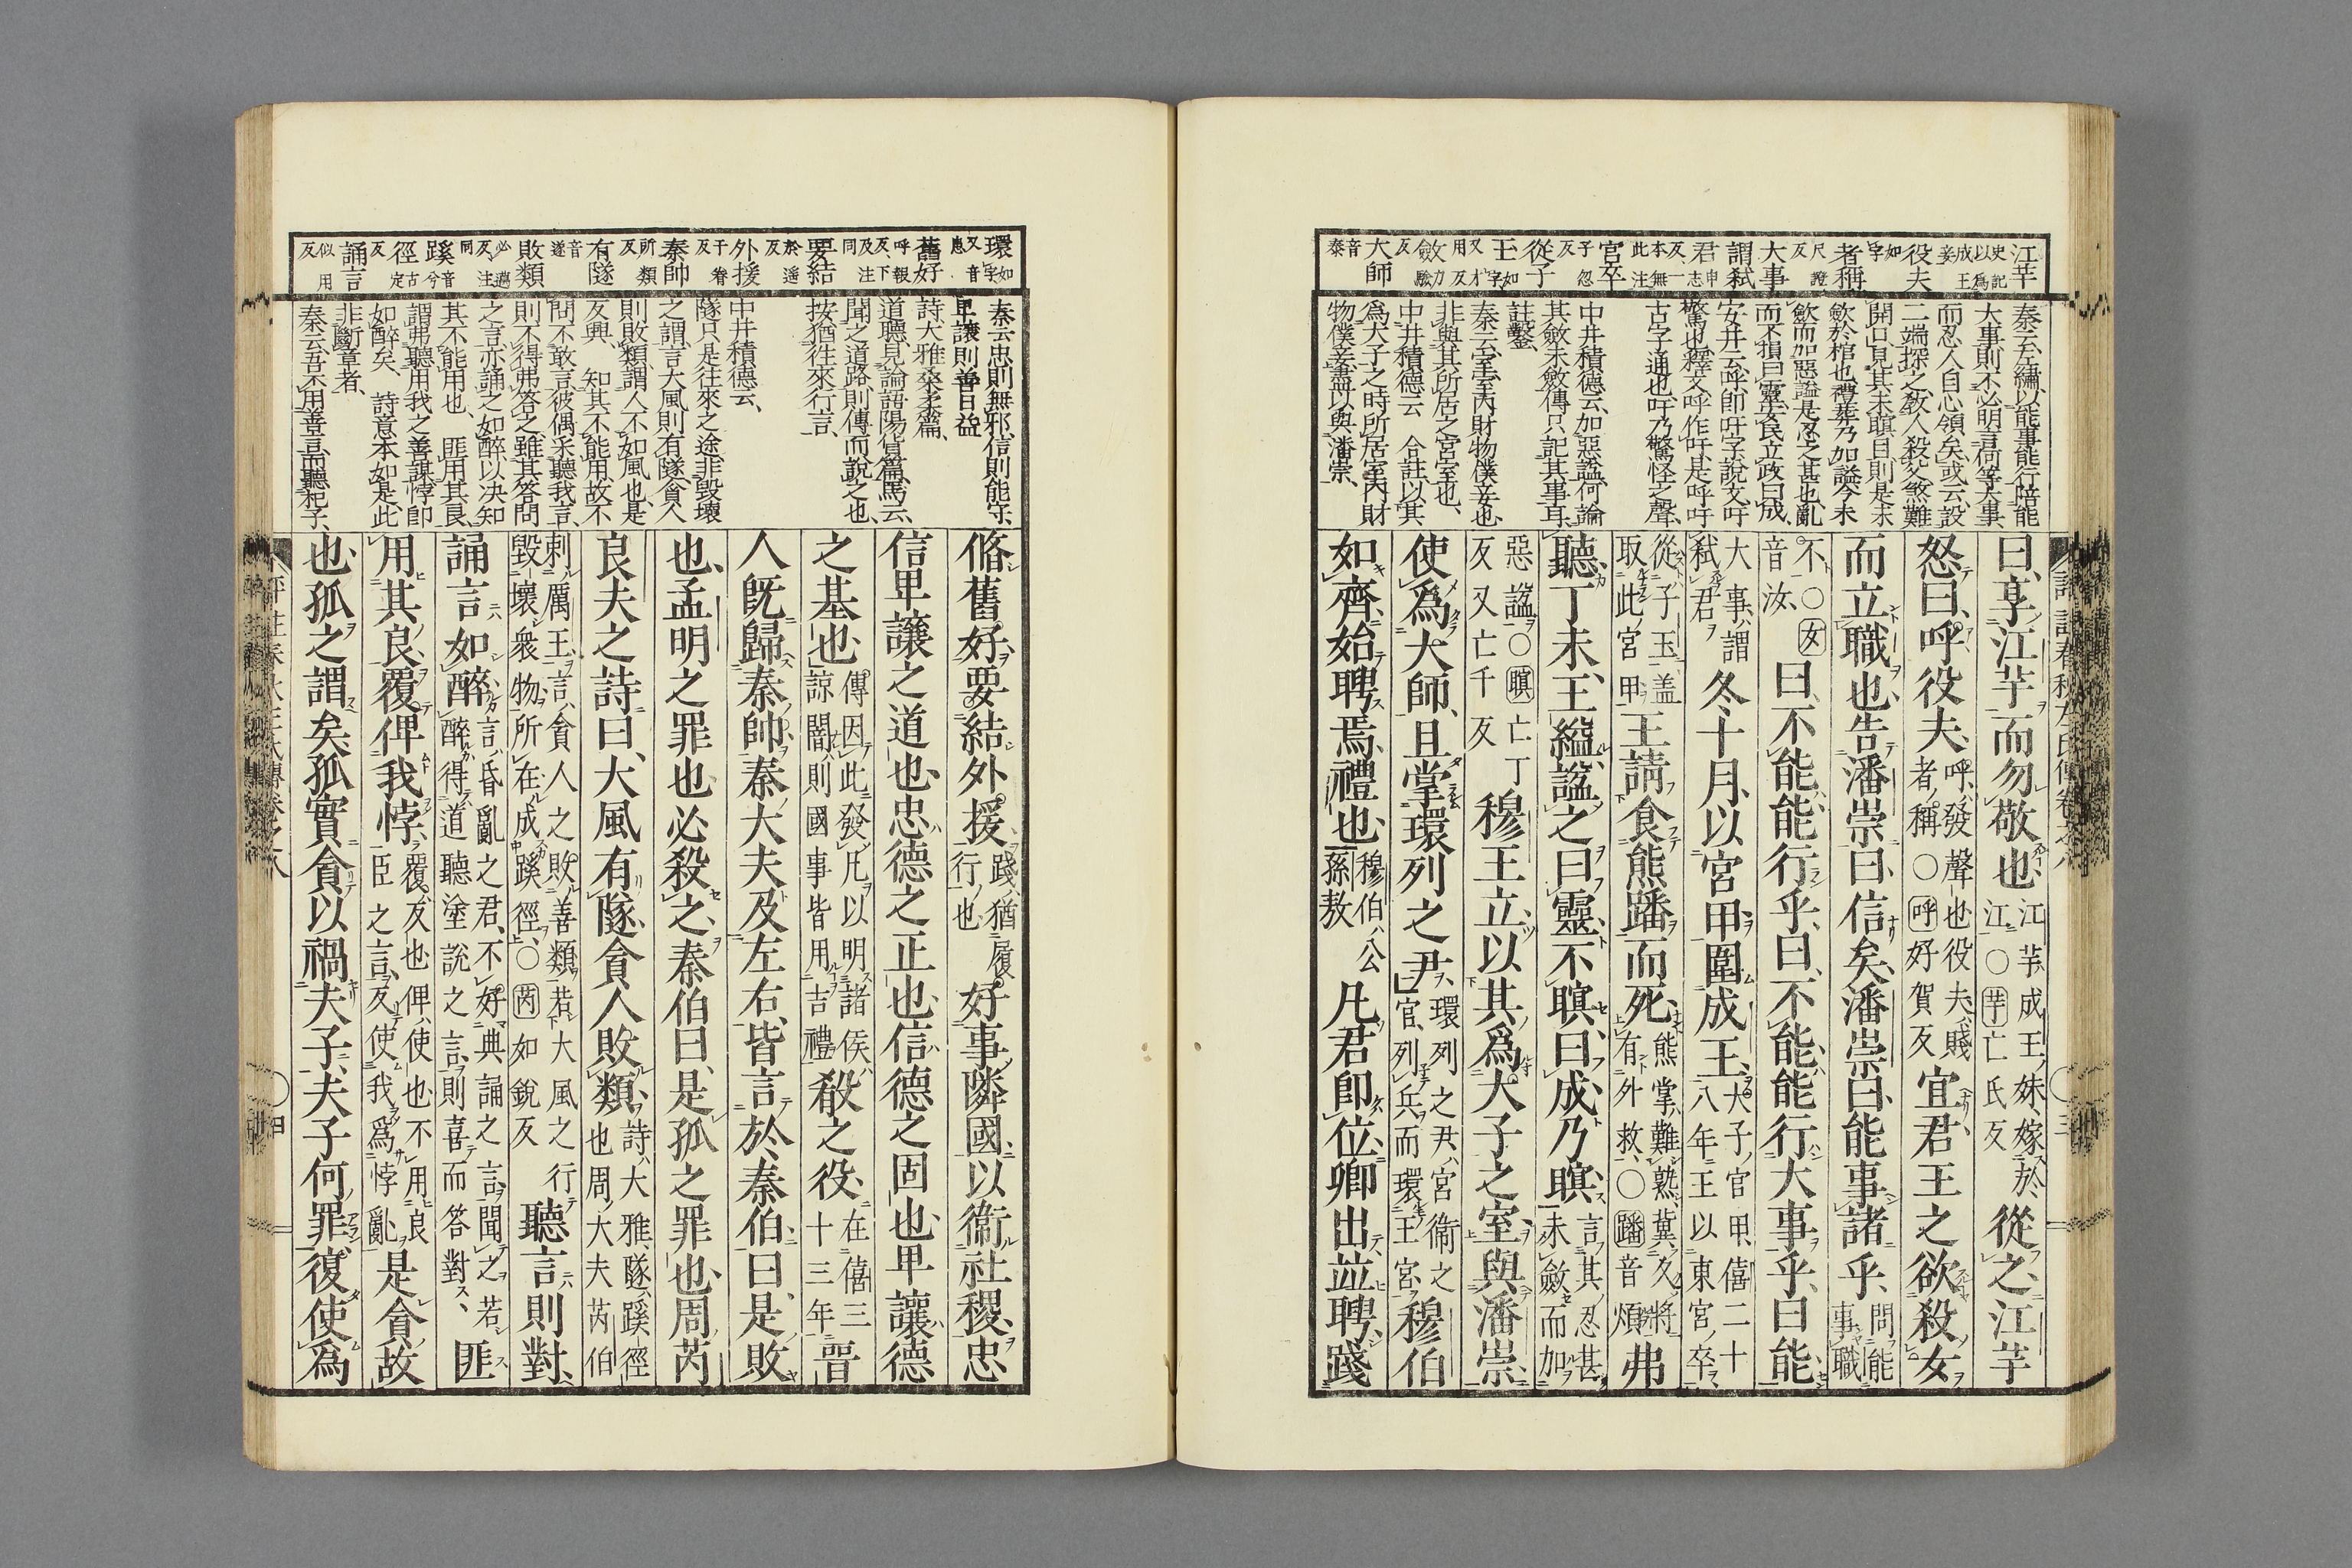 江芊 史記以爲成王妾
役夫 如字
者稱 尺證反
大事
謂弑
君 申志反一本無此注
宮卒 子忽反
從子
王 如字又才用反
斂 力驗反
大師 音泰
秦云左繡以能事能行陪能
大事則不必明言何等大事
而忍人自心領矣或云設
二端探之敘人殺父煞難
開口見其未瞑目則是未
斂於棺也禮葬乃加諡今未
斂而加惡諡是忍之甚也亂
而不損曰靈安民立政曰成
安井云呼卽吁字說文吁
驚也釋文呼作吁是呼吁
古字通也吁乃驚怪之聲
中井積德云加惡諡何論
其斂未斂傳只記其事耳
註鑿
秦云室室內財物僕妾也
非與其所居之宮室也
中井積德云合註以其
爲大子之時所居室內財
物僕妾盡以與潘崇
曰享江芊而勿敬也 江芊成王妹嫁於江○芊亡氏反 從之江芊
怒曰呼役夫 呼發聲也役夫賤者稱○呼好賀反 宜君王之欲殺女
而立職也告潘崇曰信矣潘崇曰能事諸乎 問能事職
不○女音汝 曰不能能行乎曰不能能行大事乎曰能
大事謂弑君 冬十月以宮甲圍成王 大子宮甲僖二十八年王以東宮卒
從子玉蓋取此宮甲 王請食熊蹯而死 熊掌難熟冀久將有外救○蹯音煩 弗
聽丁未王縊諡之曰靈不瞑曰成乃瞑 言其忍甚未斂而加
惡諡○瞑亡丁反又亡千反 穆王立以其爲大子之室與潘崇
使爲大師且掌環列之尹 環列之尹宮衞之官列兵而環王宮 穆伯
如齊始聘焉禮也 穆伯公孫敖 凡君卽位卿出竝聘踐
環 如字又音患
舊好 呼報反下及注同
要結 於遥反
外援 于眷反
秦帥 所類反
有隧 音遂
敗類 必邁反注同
蹊 音兮
徑 古定反
誦言 似用反
秦云忠則無邪信則能守
卑讓則善日益
詩大雅桑柔篇
道聽見論語陽貨篇馬云
聞之道路則傳而說之也
按猶往來行言
中井積德云
隧只是往來之途非毀壞
之謂言大風則有隧貪人
則敗類謂人不如風也是
反興 知其不能用故不
問不敢言彼偶采聽我言
則不得弗答之雖其答問
之言亦誦之如醉以決知
其不能用也 匪用其良
謂弗聽用我之善謀悖卽
如醉矣 詩意本如是此
非斷章者
秦云吾不用善言而聽杞子
脩舊好要結外援 踐猶履行也 好事隣國以衞社稷忠
信卑讓之道也忠德之正也信德之固也卑讓德
之基也 傳因此發凡以明諸侯諒闇則國事皆用吉禮 殽之役 在僖三十三年 晉
人旣歸秦帥秦大夫及左右皆言於秦伯曰是敗
也孟明之罪也必殺之秦伯曰是孤之罪也周芮
良夫之詩曰大風有隧貪人敗類 詩大雅隧蹊徑也周大夫芮伯
刺厲王言貪人之敗善類若大風之行毀壞衆物所在成蹊徑○芮如銳反 聽言則對
誦言如醉 言昏亂之君不好典誦之言聞之若醉得道聽塗說之言則喜而答對 匪
用其良覆俾我悖 覆反也俾使也不用良臣之言反使我爲悖亂 是貪故
也孤之謂矣孤實貪以禍夫子夫子何罪復使爲